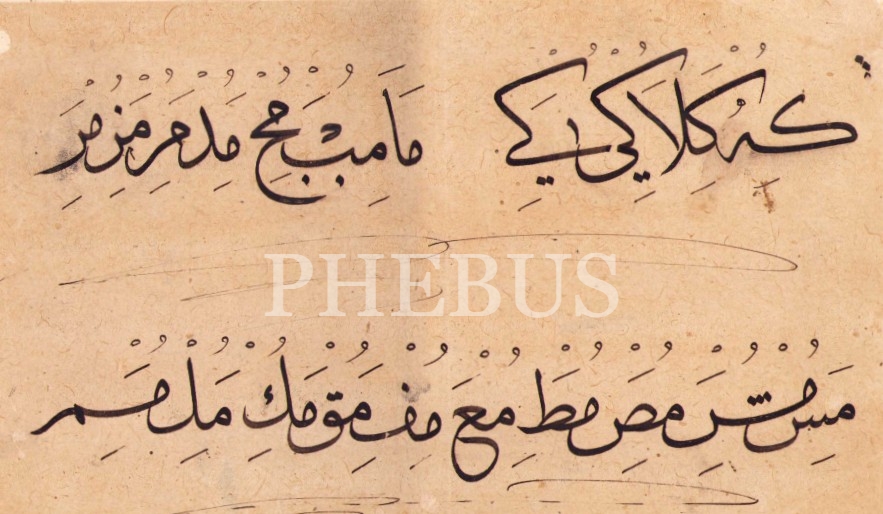 كه كلا كي كي ما مب مج مد مر مز مر
PHEBUS
مس مش مص مط مع مف مق مك مل مم